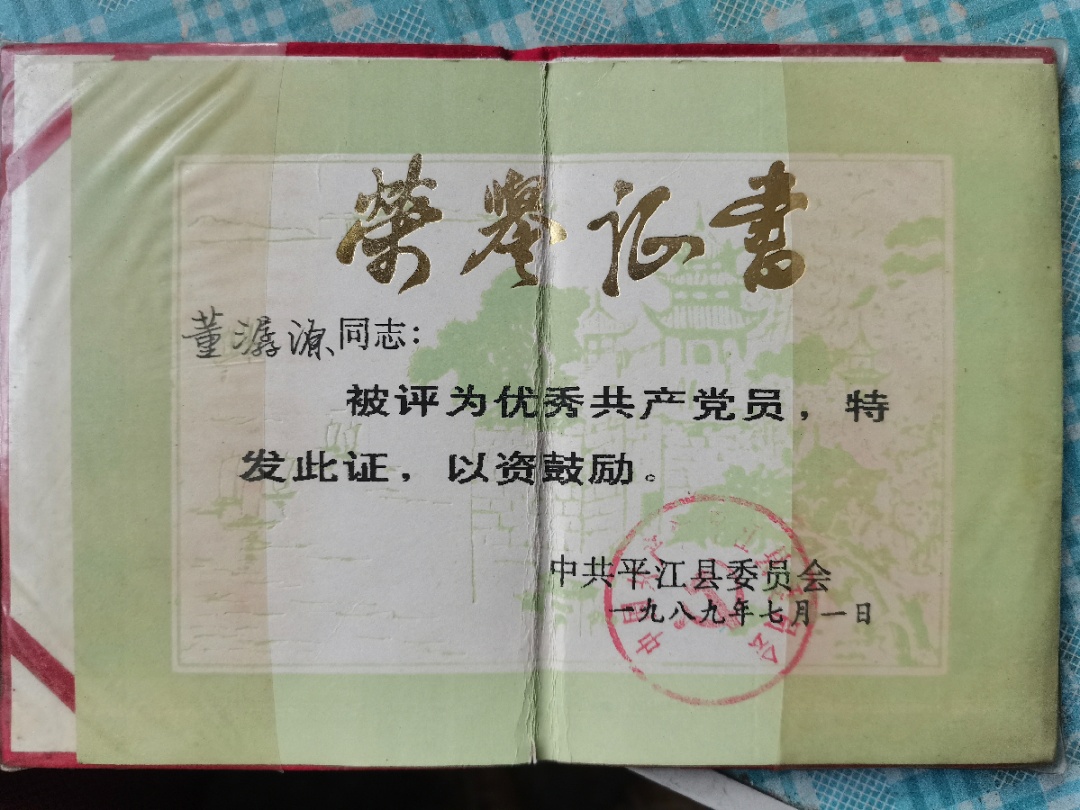 荣誉证书
董潺源同志：
被评为优秀共产党员，特
发此证，以资鼓励。
中共平江县委员会
一九八九年七月一日